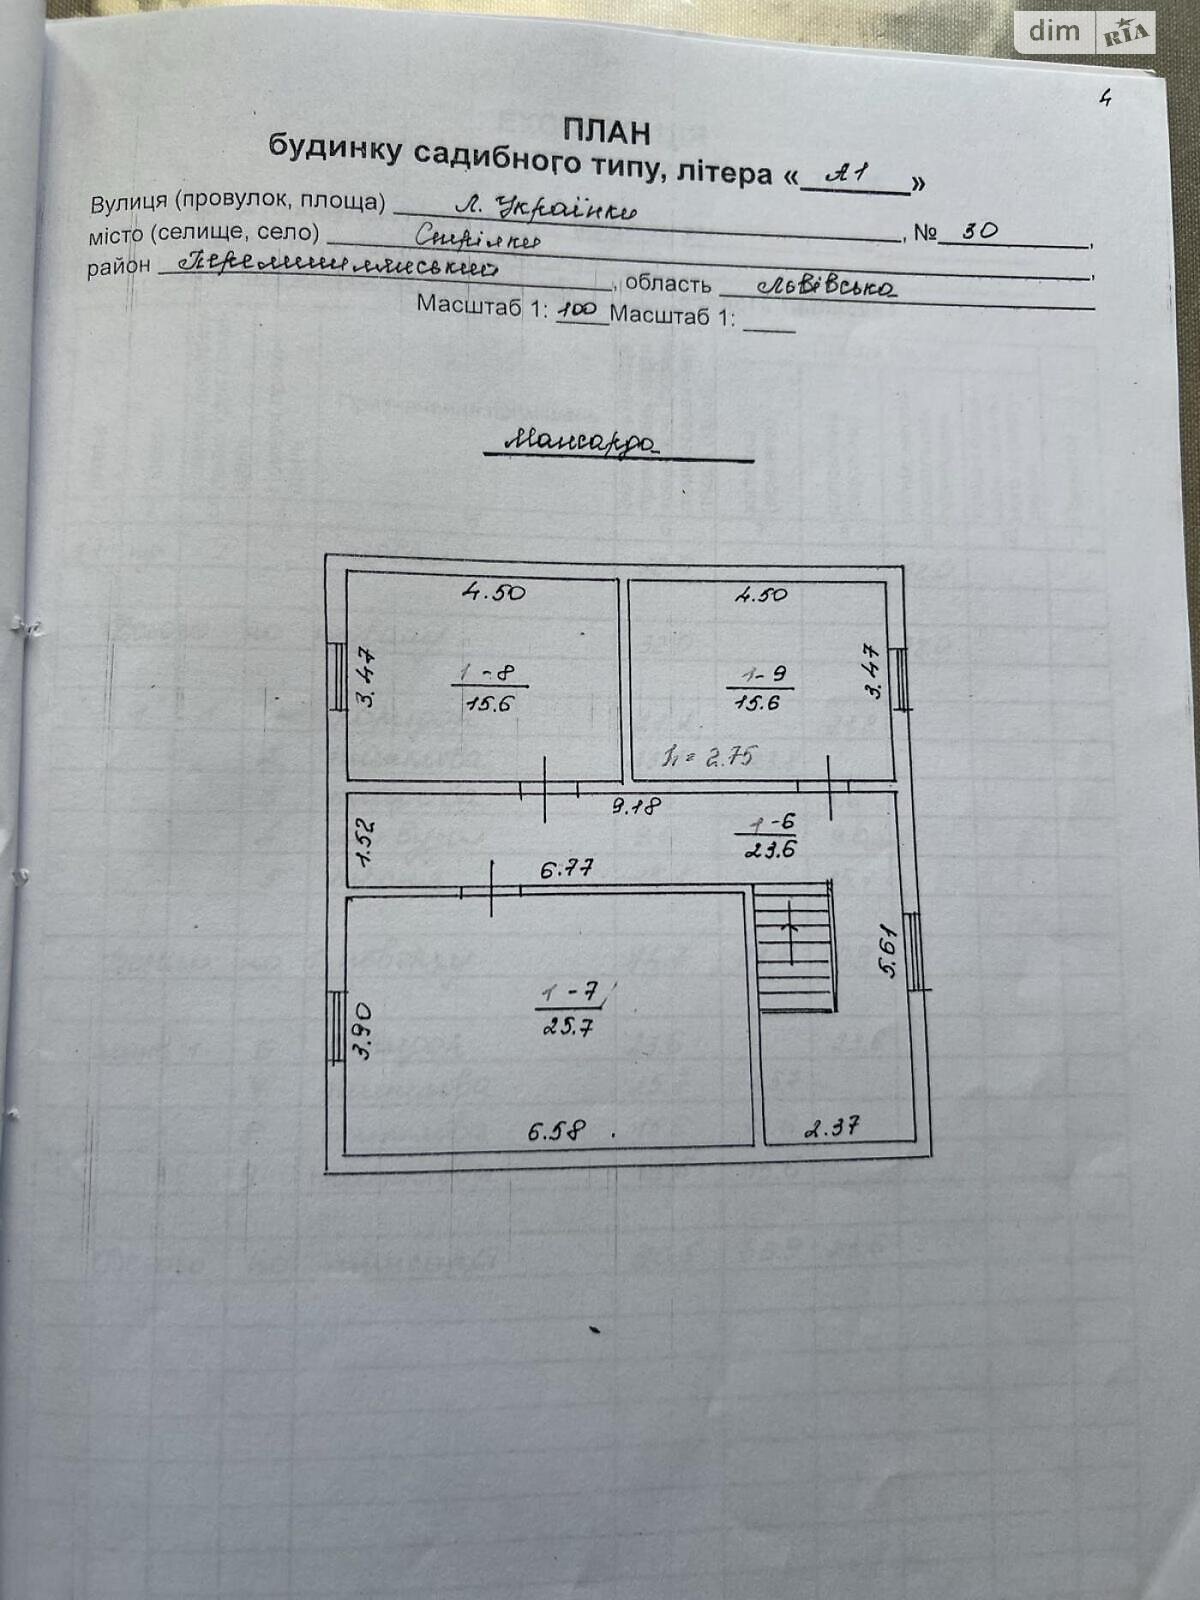 dim RIA
4
ПЛАН
будинку садибного типу, літера « А1 »
Вулиця (провулок, площа) Л. Українки, № 30,
місто (селище, село) Стрілки,
район Перемишлянський, область Львівська
Масштаб 1: 100 Масштаб 1:
Мансарда
4.50 4.50
3.47 1-8 1-9 3.47
15.6 15.6
h = 2.75
9.18
1.52 1-6
23.6
6.77
5.61
1-7
3.90 25.7
6.58 2.37